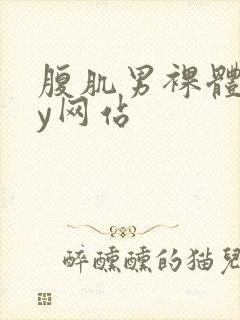 腹肌男裸體
y网佔
醉醺醺的猫兒